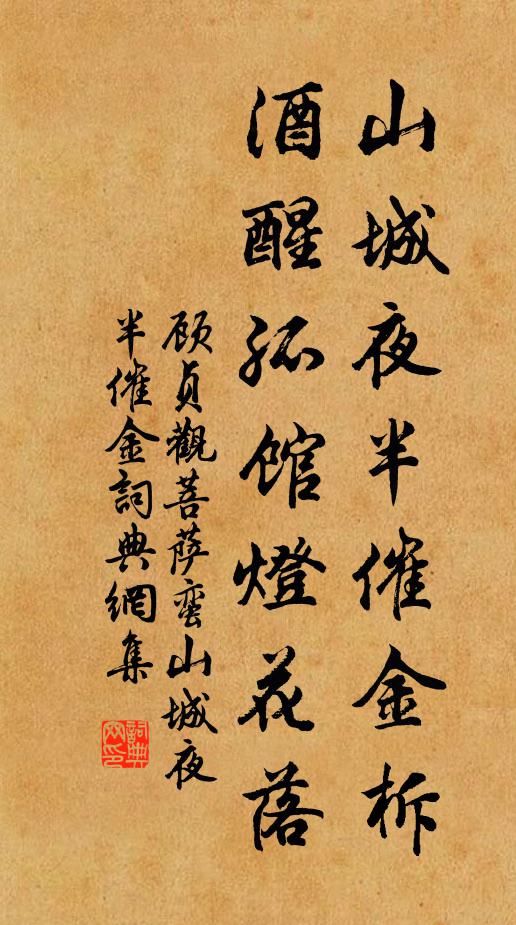 山城夜半催金柝
酒醒孤馆燈花落
顾贞觀菩萨蛮山城夜
半催金詞典網集
詞典
网印